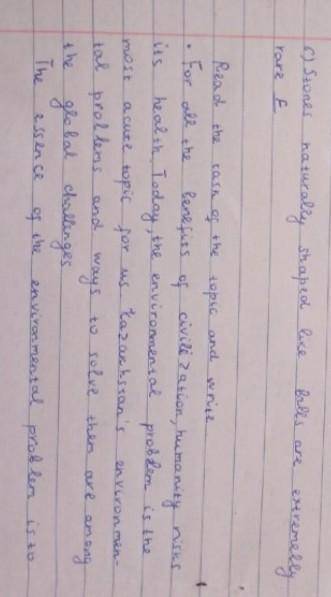 c) Stones naturally shaped like balls are extremelly
rare F
Read the task of the topic and write
• For all the benefits of civilization, humanity risks
its health. Today, the environmental problem is the
most acute topic for us Kazakhstan's environmen-
tal problems and ways to solve them are among
the global challenges
The essence of the environmental problem is to